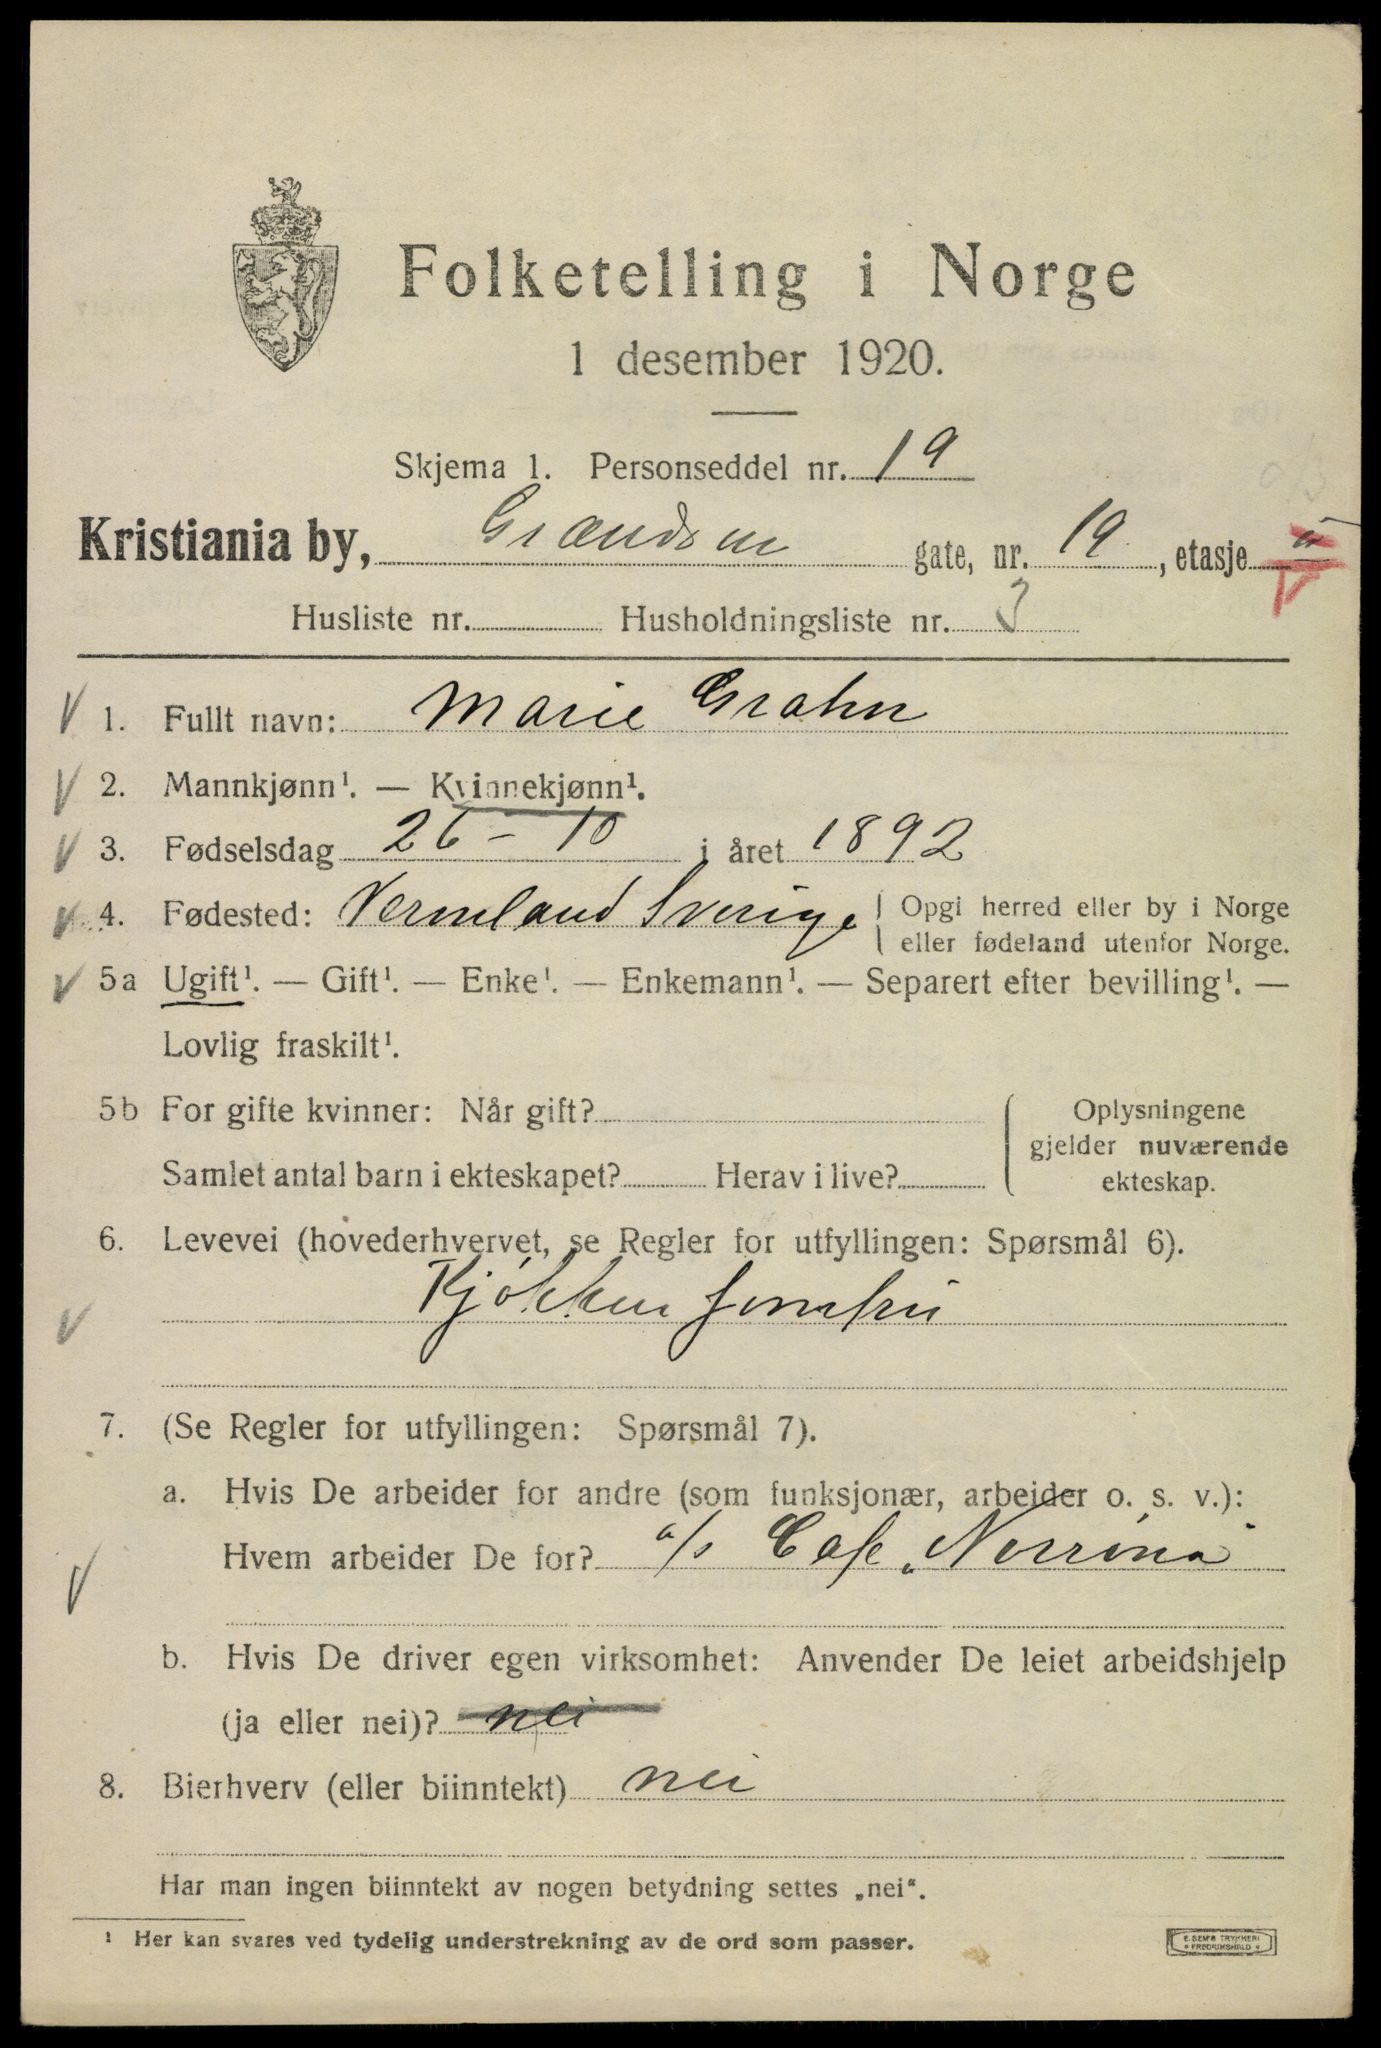 Folketelling i Norge
1 desember 1920.
Skjema 1. Personseddel nr. 19
Kristiania by, Grændsen gate, nr. 19, etasje II
Husliste nr. Husholdningsliste nr. 3
1. Fullt navn: Marie Grahn
2. Mannkjønn¹. — Kvinnekjønn¹.
3. Fødselsdag 26 - 10 i året 1892
4. Fødested: Vermland Sverige { Opgi herred eller by i Norge
eller fødeland utenfor Norge.
5a Ugift¹. — Gift¹. — Enke¹. — Enkemann¹. — Separert efter bevilling¹. —
Lovlig fraskilt¹.
5b For gifte kvinner: Når gift? Oplysningene
gjelder nuværende
Samlet antal barn i ekteskapet? Herav i live? ekteskap.
6. Levevei (hovederhvervet, se Regler for utfyllingen: Spørsmål 6).
Kjøkken jomfru
7. (Se Regler for utfyllingen: Spørsmål 7).
a. Hvis De arbeider for andre (som funksjonær, arbeider o. s. v.):
Hvem arbeider De for? a/s Cafe „Norrøna"
b. Hvis De driver egen virksomhet: Anvender De leiet arbeidshjelp
(ja eller nei)? nei
8. Bierhverv (eller biinntekt) nei
Har man ingen biinntekt av nogen betydning settes „nei“.
¹ Her kan svares ved tydelig understrekning av de ord som passer.
E. SEM'S TRYKKERI
FREDRIKSHALD